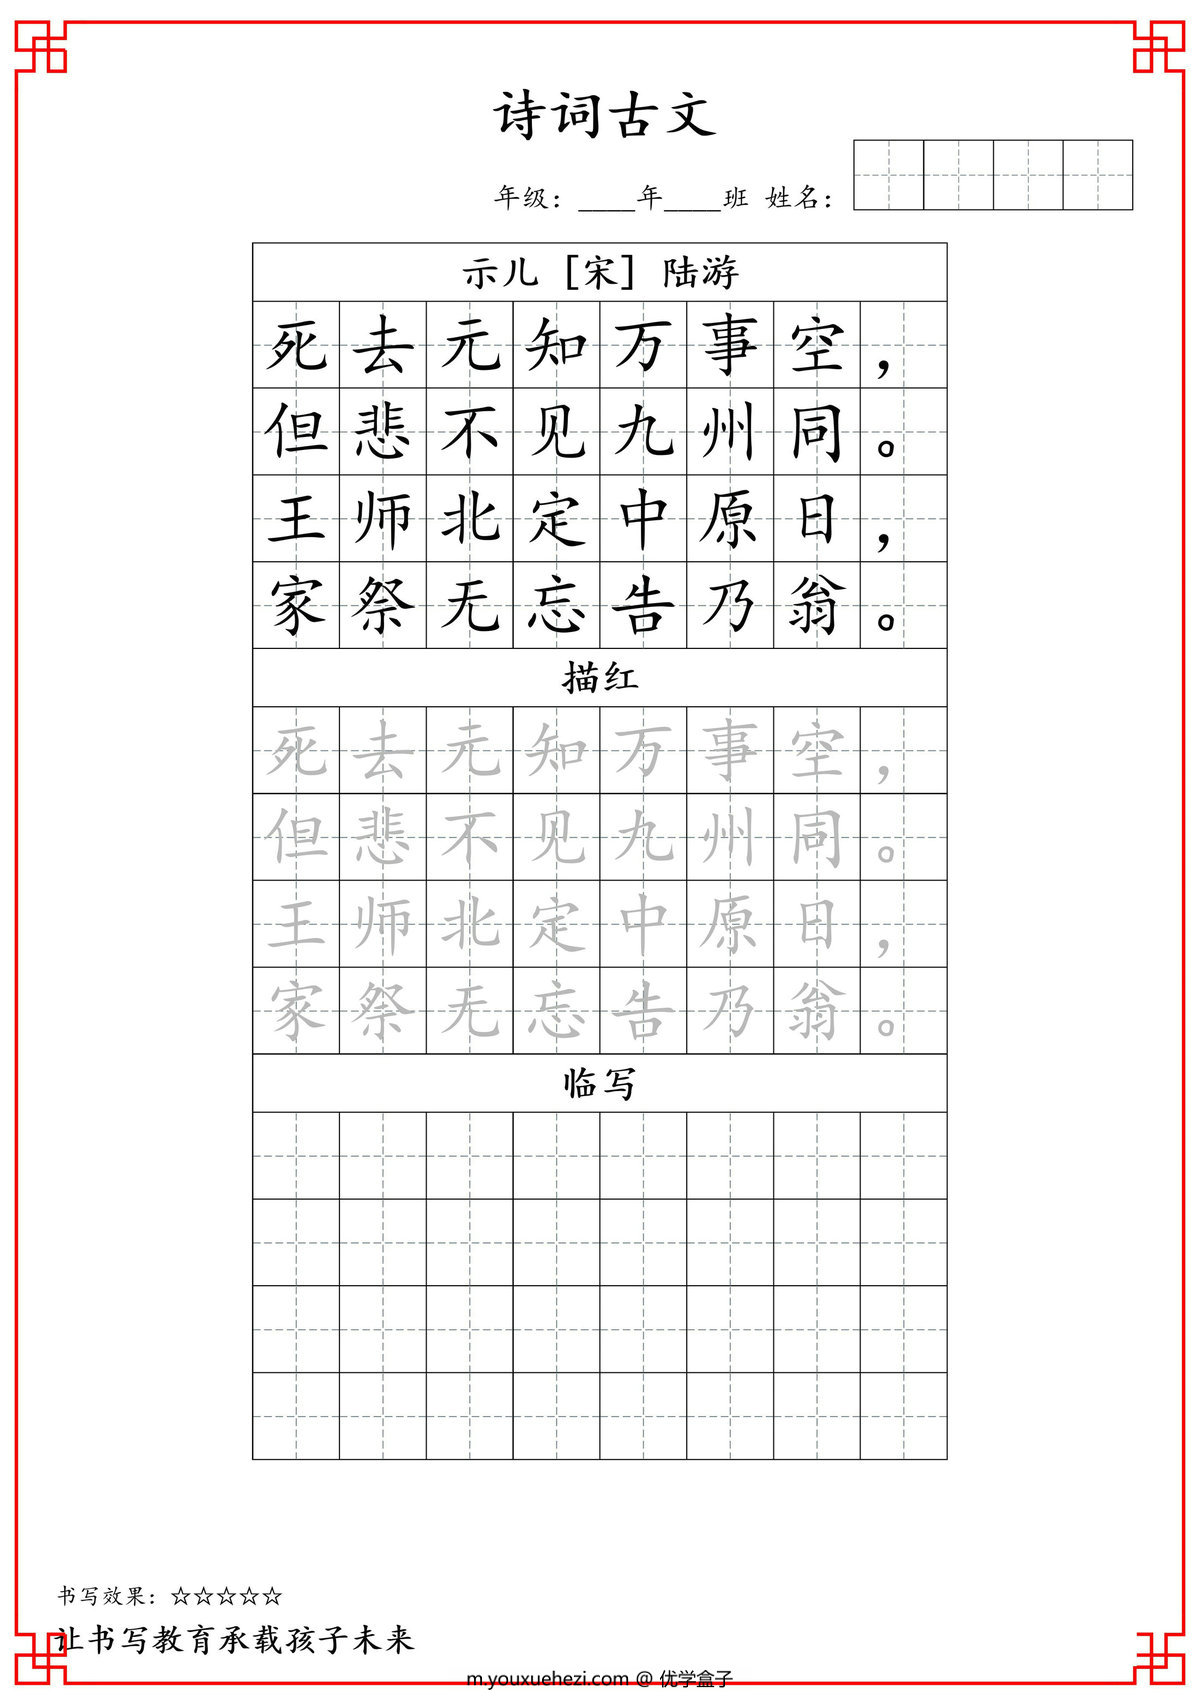 诗词古文
年级：____年____班 姓名：
示儿 [宋] 陆游
死去元知万事空，
但悲不见九州同。
王师北定中原日，
家祭无忘告乃翁。
描红
死去元知万事空，
但悲不见九州同。
王师北定中原日，
家祭无忘告乃翁。
临写
书写效果：☆☆☆☆☆
让书写教育承载孩子未来
m.youxuehezi.com @ 优学盒子